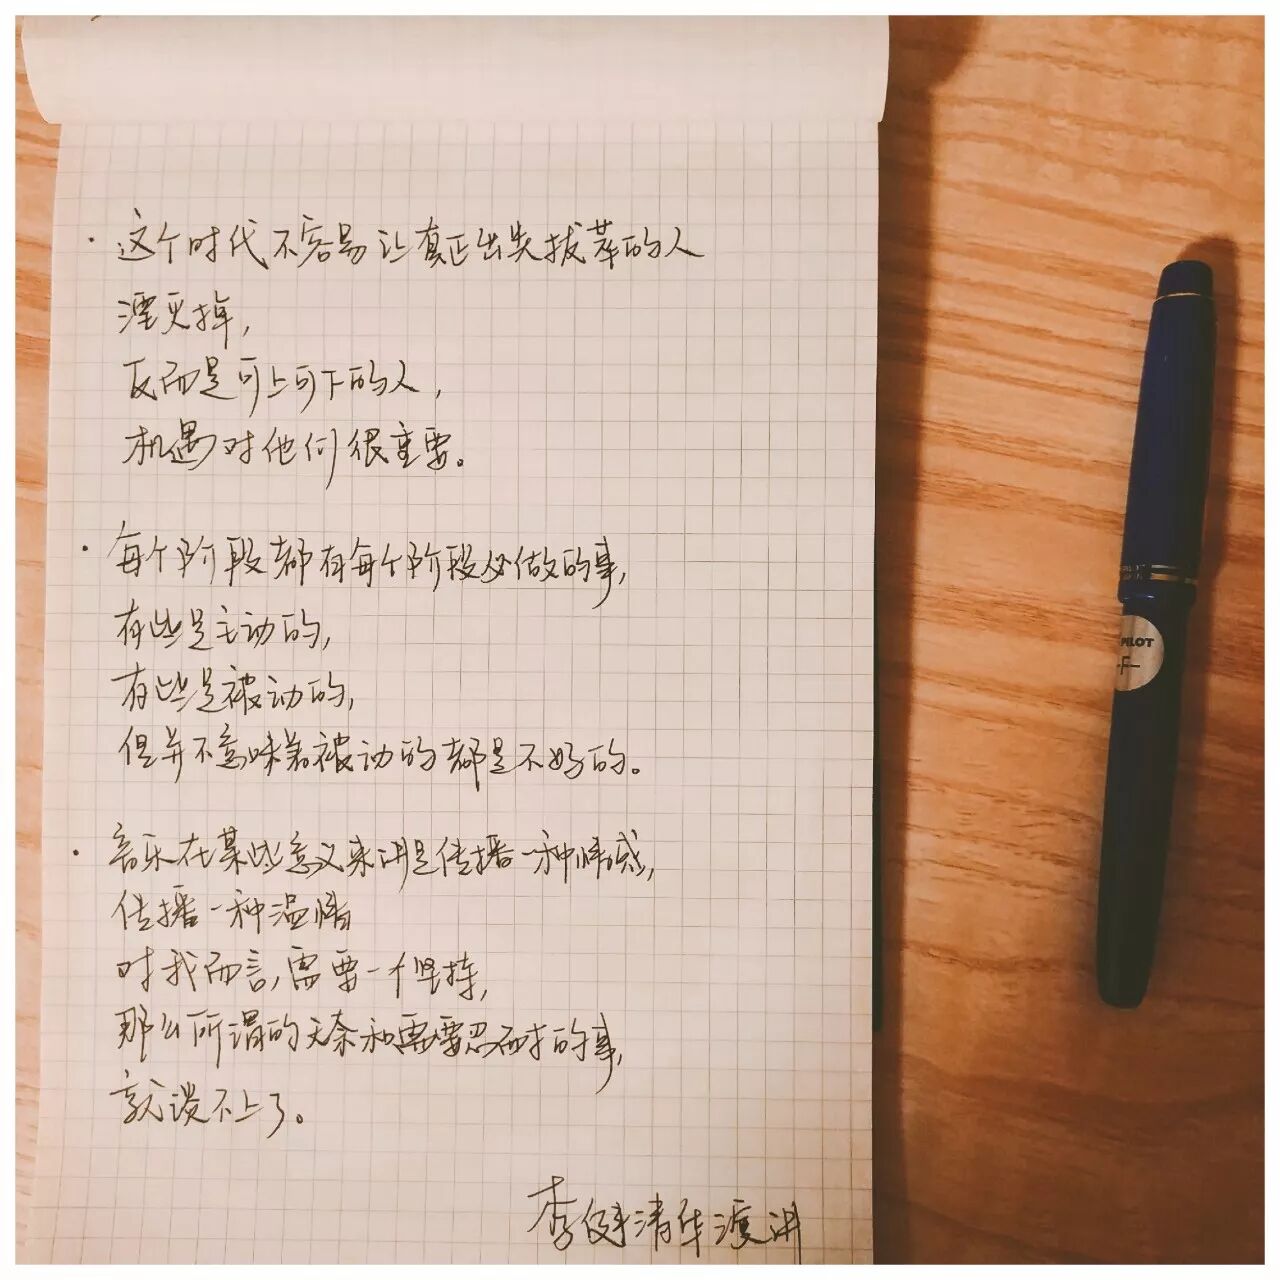 · 这个时代不容易让真正出类拔萃的人
湮灭掉,
反而是可上可下的人,
机遇对他们很重要。
· 每个阶段都有每个阶段必做的事,
有些是主动的,
有些是被动的,
但并不意味着被动的都是不好的。
· 音乐在某些意义来讲是传播一种情感,
传播一种温情
对我而言,需要一个坚持,
那么所谓的无奈和需要忍耐的事,
就谈不上了。
李健清华演讲
PILOT
-F-